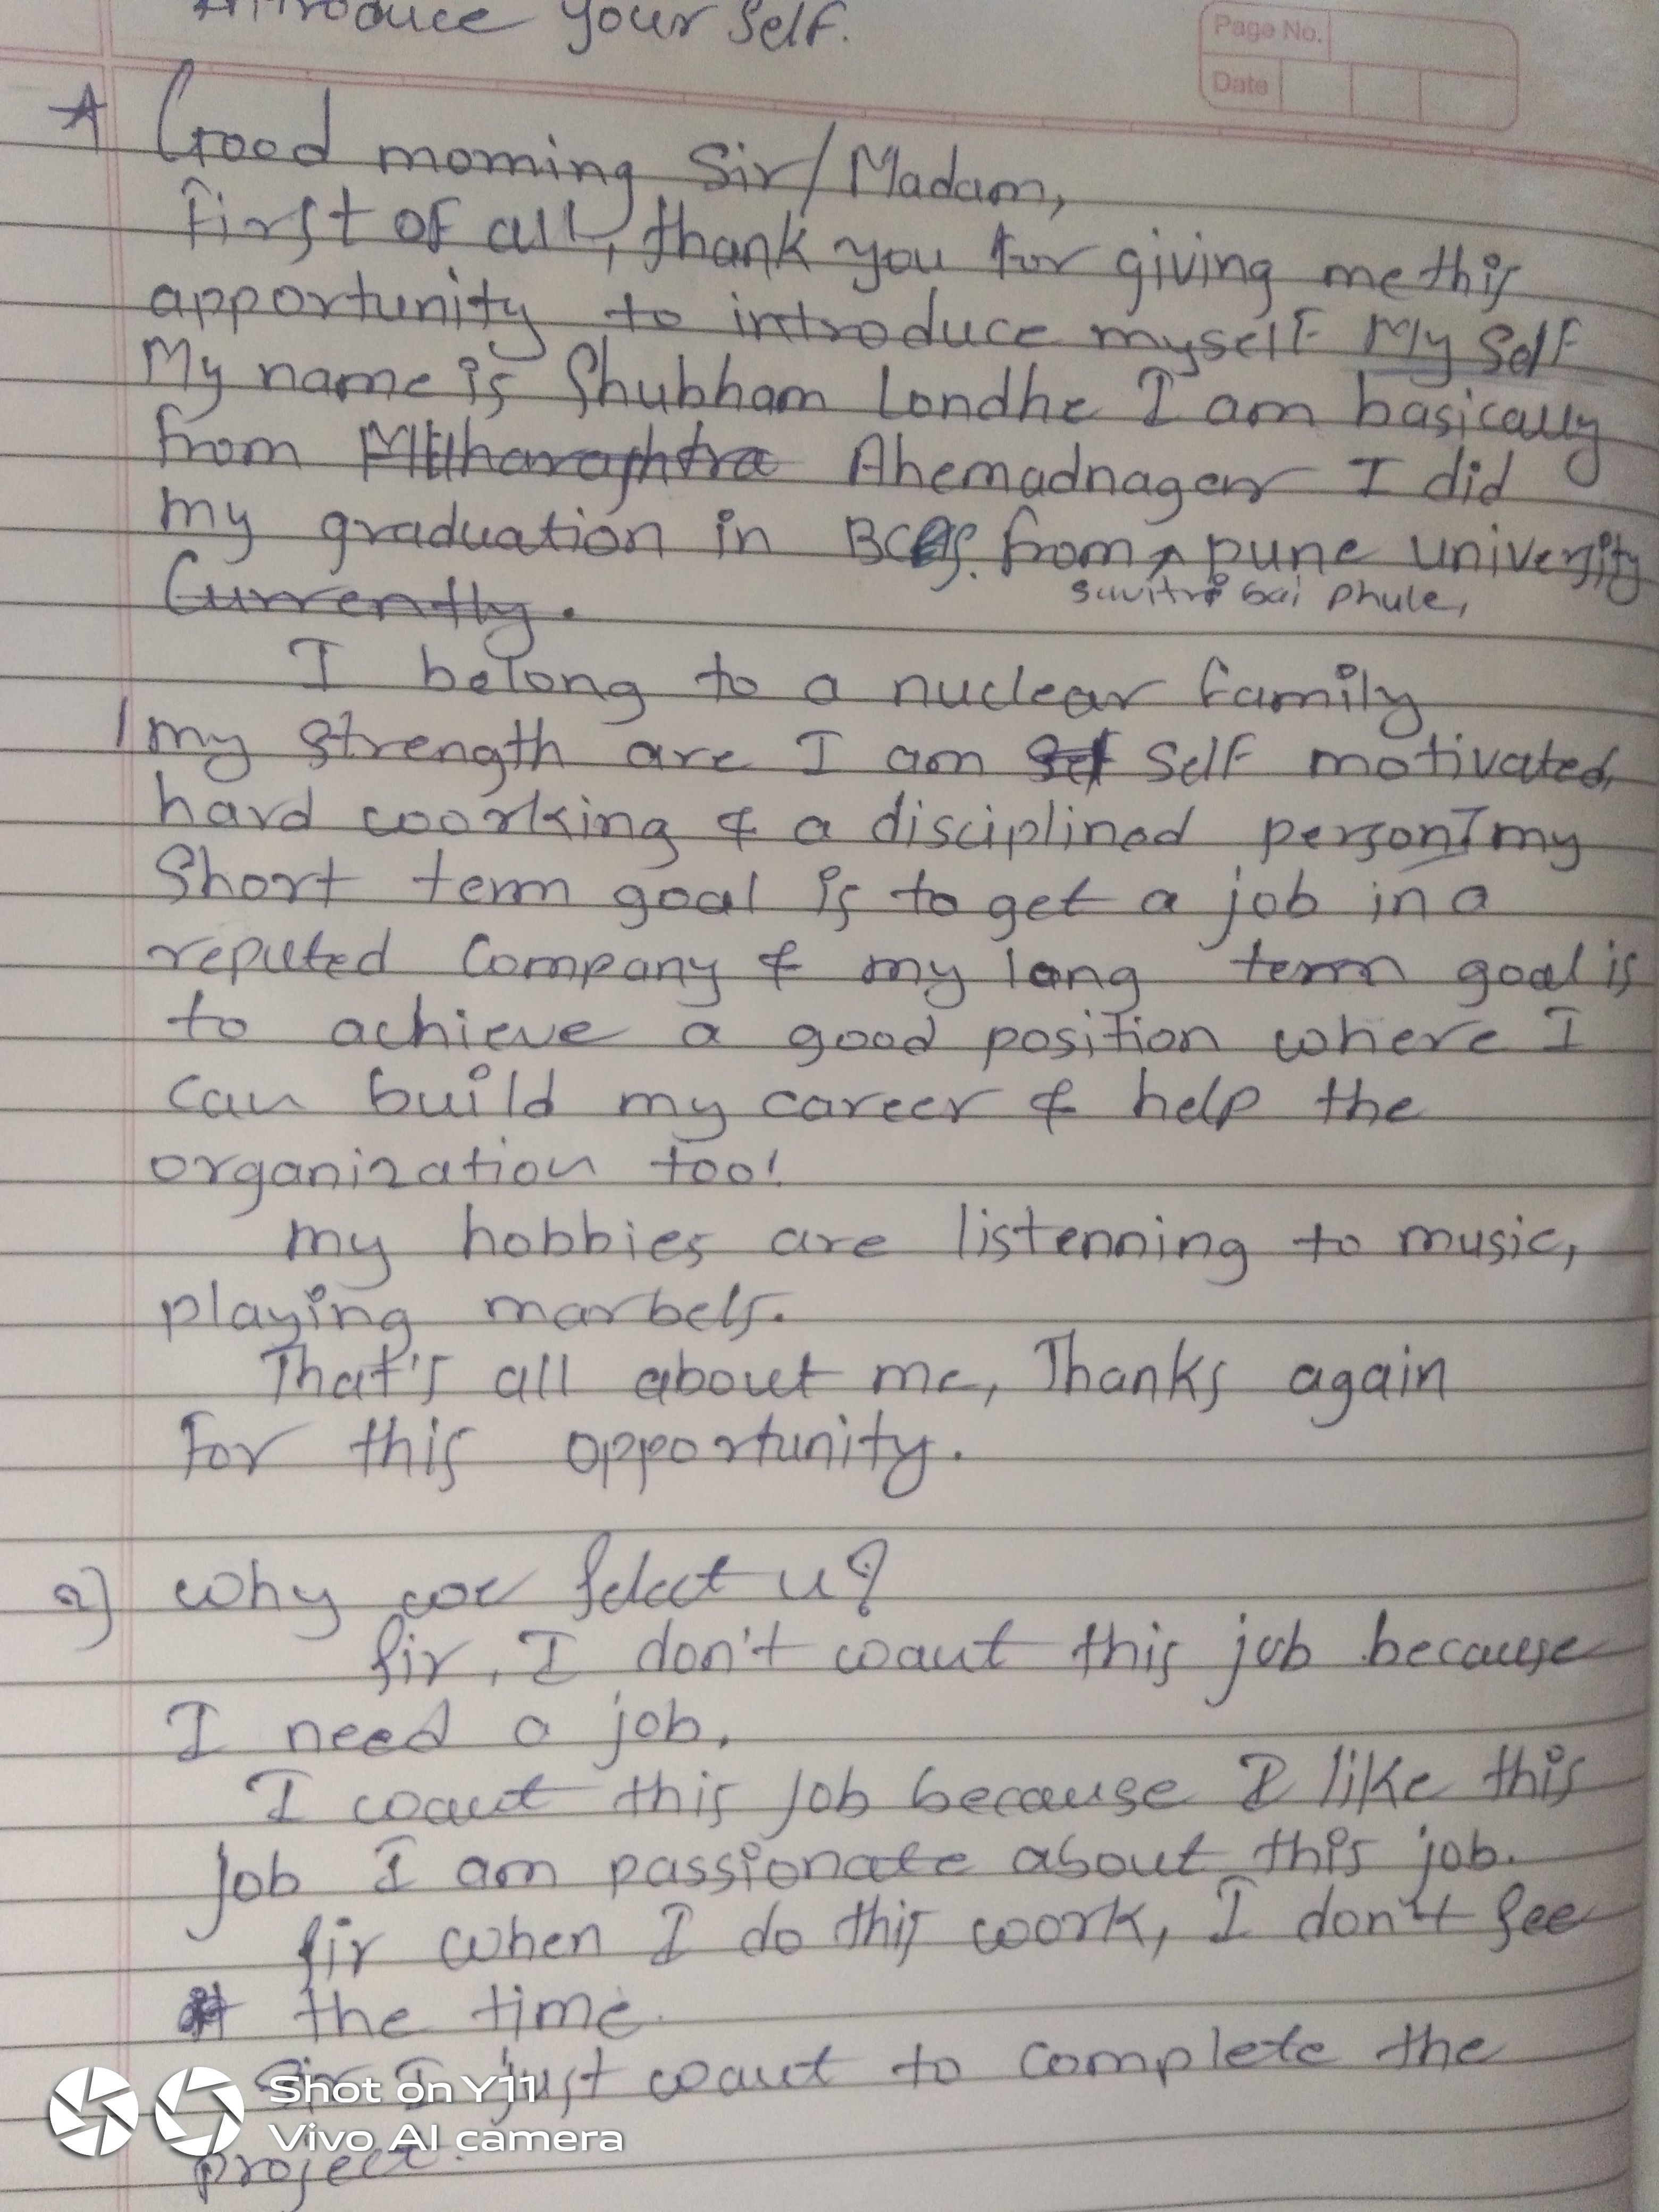 Introduce your Self.
Page No.
Date
Good morning Sir/Madam,
First of all, thank you for giving me this
apportunity to introduce myself My Self
My name is Shubham Londhe I am basically
from Ahemadnagar I did
my graduation in from ^ pune university
savitri bai Phule,
Currently.
I belong to a nuclear family
my strength are I am Self motivated,
hard woorking & a disciplined person my
Short term goal is to get a job in a
reputed Company & my long term goal is
to achieve a good position where I
can build my career & help the
organization too!
my hobbies are listenning to music,
playing marbels.
That's all about me, Thanks again
For this opportunity.
2) why we Select u?
Sir, I don't want this job because
I need a job.
I want this job because I like this
job I am passionate about this job.
Sir when I do this woork, I don't see
the time.
Sir I just want to complete the
project.
Shot on Y11
Vivo AI camera